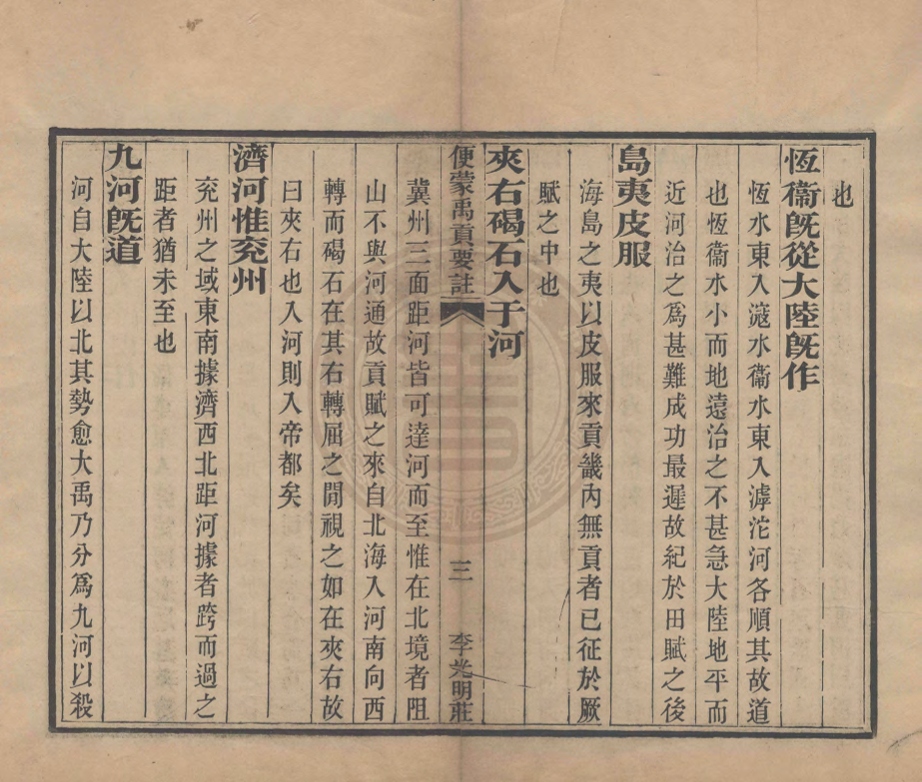 也
恆衞旣從大陸旣作
恆水東入滱水衞水東入滹沱河各順其故道
也恆衞水小而地遠治之不甚急大陸地平而
近河治之爲甚難成功最遲故紀於田賦之後
島夷皮服
海島之夷以皮服來貢畿內無貢者已征於厥
賦之中也
夾右碣石入于河
便蒙禹貢要註
三
李光明莊
冀州三面距河皆可達河而至惟在北境者阻
山不與河通故貢賦之來自北海入河南向西
轉而碣石在其右轉屈之閒視之如在夾右故
曰夾右也入河則入帝都矣
濟河惟兖州
兖州之域東南據濟西北距河據者跨而過之
距者猶未至也
九河旣道
河自大陸以北其勢愈大禹乃分爲九河以殺